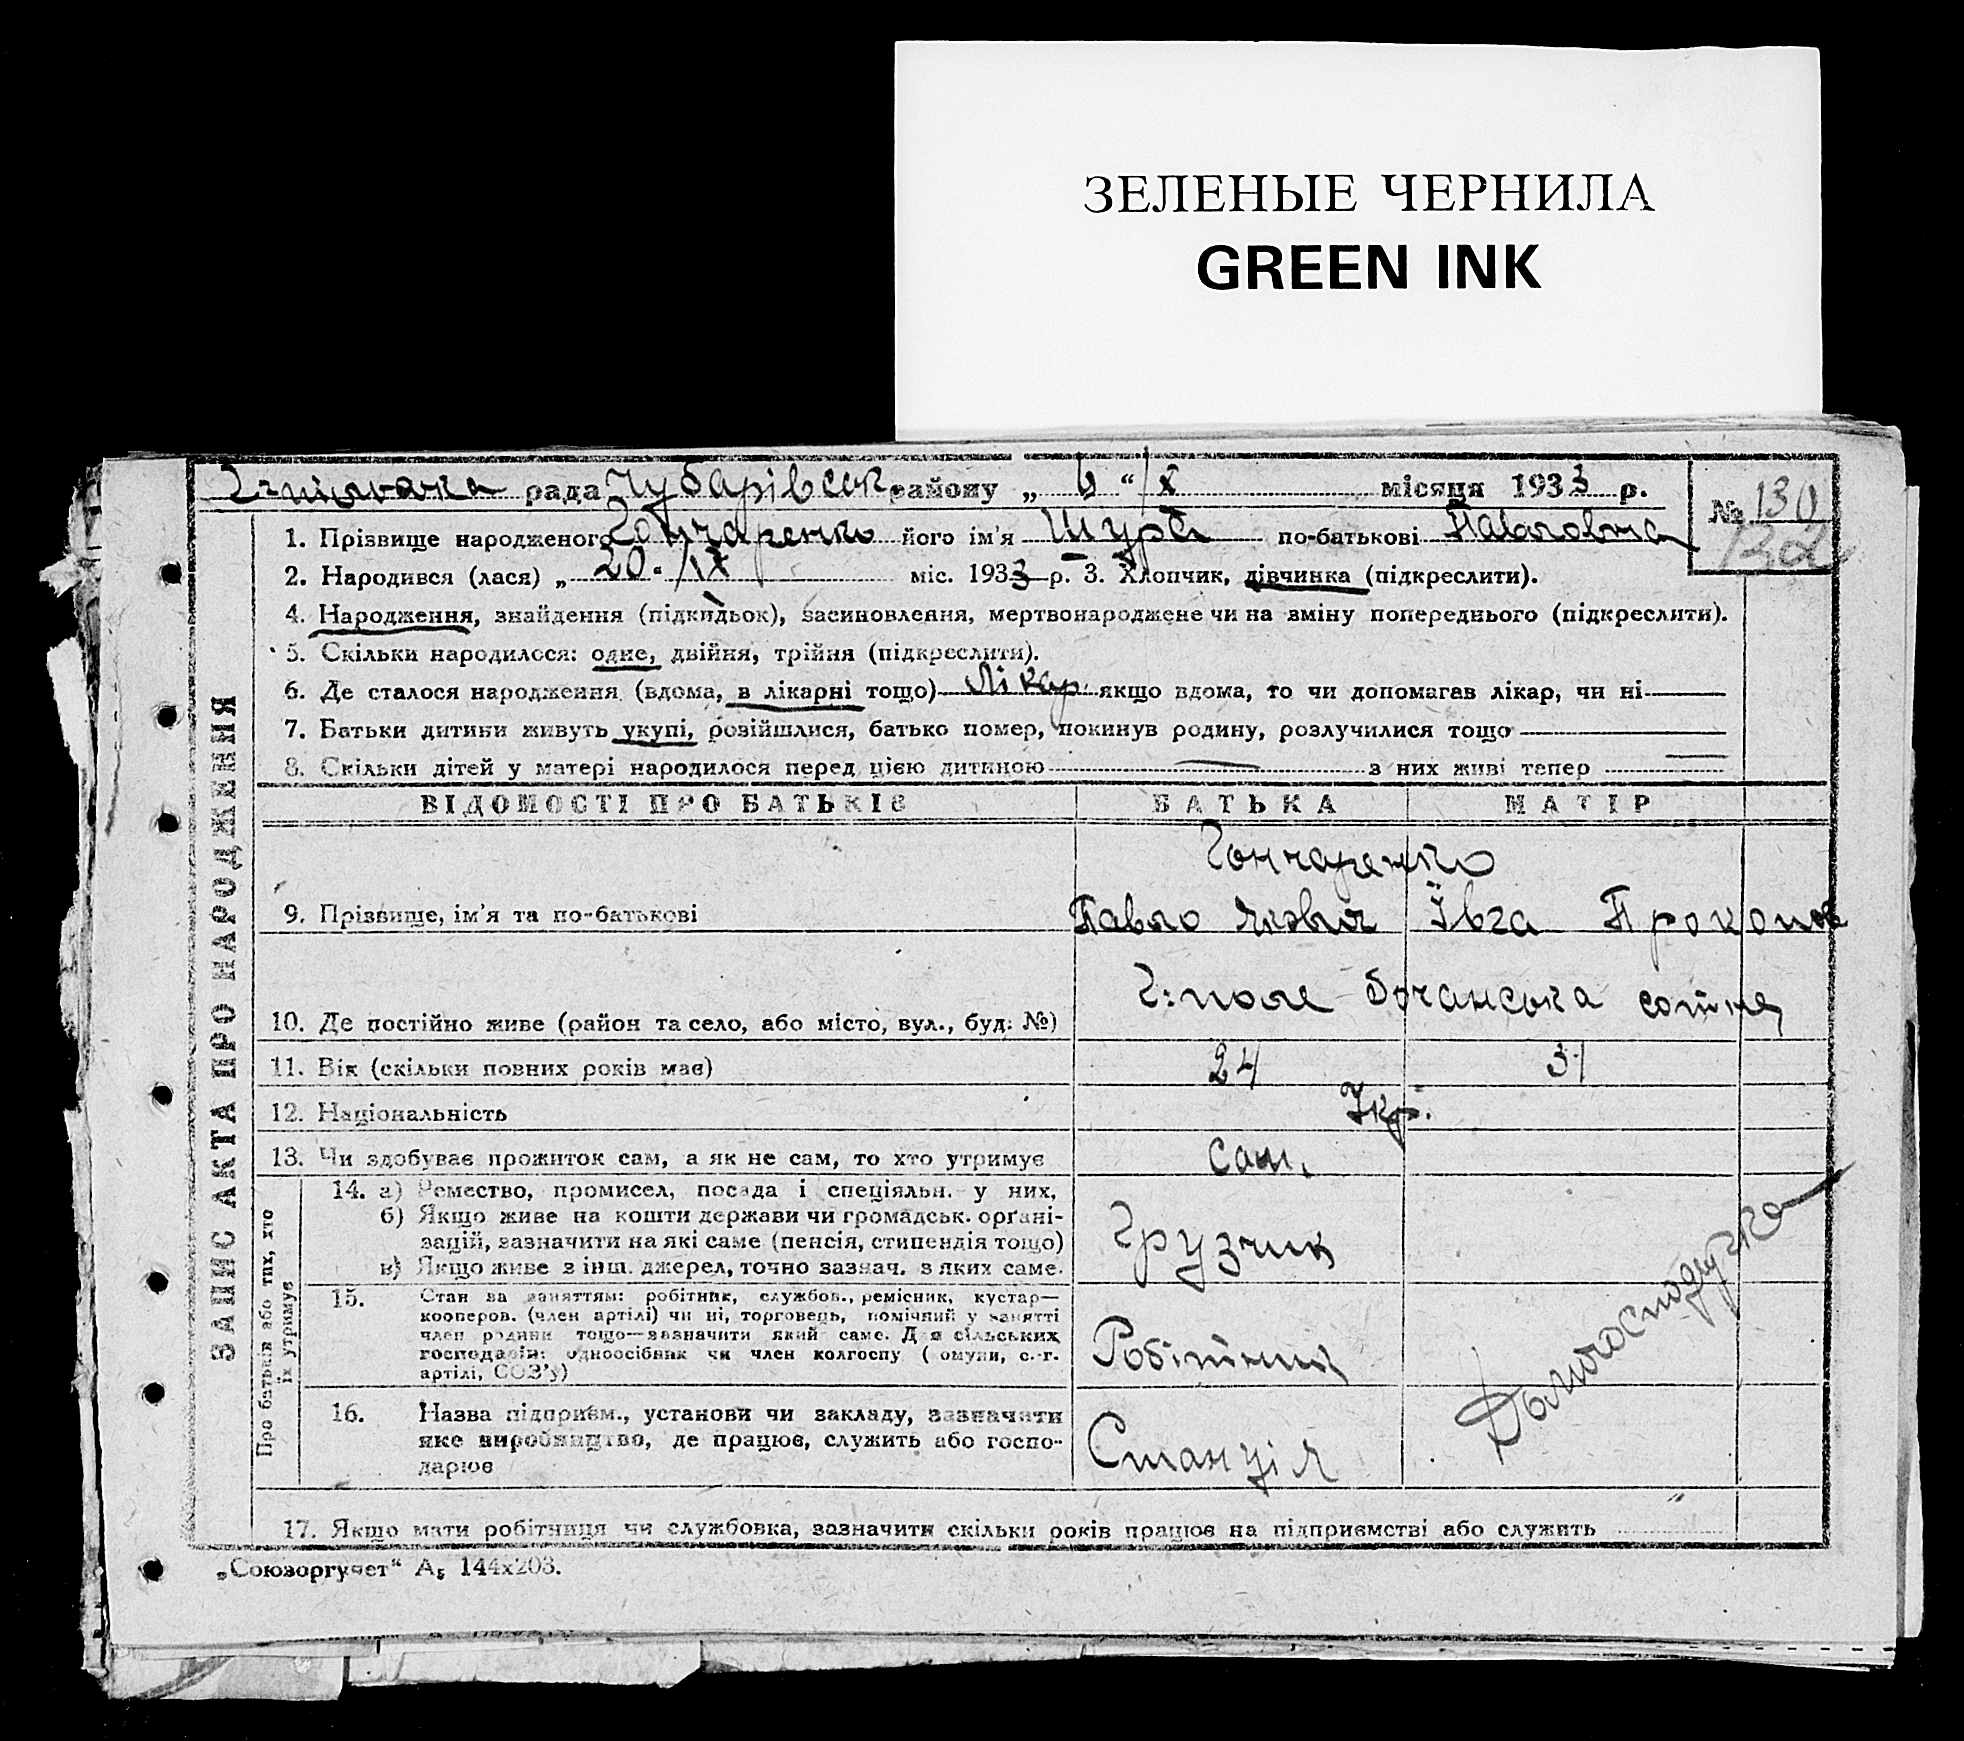 ЗЕЛЕНЫЕ ЧЕРНИЛА
GREEN INK
рада Чубарівськ. району „ 6 “ /X місяця 1933 р.
№ 130
132
1. Прізвище народженого Гончаренко його ім'я Шура по-батькові Павловна
2. Народився (лася) „ 20. /IX міс. 1933 р. 3. Хлопчик, дівчинка (підкреслити).
4. Народження, знайдення (підкидьок), засиновлення, мертвонароджене чи на зміну попереднього (підкреслити).
5. Скільки народилося: одне, двійня, трійня (підкреслити).
6. Де сталося народження (вдома, в лікарні тощо) Лікар. якщо вдома, то чи допомагав лікар, чи ні
7. Батьки дитини живуть укупі, розійшлися, батько помер, покинув родину, розлучилися тощо
8. Скільки дітей у матері народилося перед цією дитиною — з них живі тепер —
ЗАПИС АКТА ПРО НАРОДЖЕННЯ
ВІДОМОСТІ ПРО БАТЬКІВ БАТЬКА МАТІР
Гончаренко
9. Прізвище, ім'я та по-батькові Павло Яковл Ївга Прокопов
Г:поле Бочанська сотня
10. Де постійно живе (район та село, або місто, вул., буд. №)
11. Вік (скільки повних років має) 24 31
12. Національність Укр.
13. Чи здобуває прожиток сам, а як не сам, то хто утримує Сам.
Про батьків або тих, хто їх утримує
14. а) Ремество, промисел, посада і спеціяльн. у них,
б) Якщо живе на кошти держави чи громадськ. орґані-
зацій, зазначити на які саме (пенсія, стипендія тощо)
в) Якщо живе з інш. джерел, точно зазнач. з яких саме.
Грузчик
Домогосподружа
15. Стан за заняттям: робітник, службов., ремісник, кустар—
кооперов. (член артілі) чи ні, торговець, помічний у занятті
член родини тощо—зазначити який саме. Для сільських
господарів: одноосібник чи член колгоспу (комуни, с.-г.
артілі, СОЗ'у)
Робітник
16. Назва підприєм., установи чи закладу, зазначити
яке виробництво, де працює, служить або госпо-
дарює
Станція
17. Якщо мати робітниця чи службовка, зазначити скільки років працює на підприємстві або служить
„Союзоргучет“ А₅ 144х203.